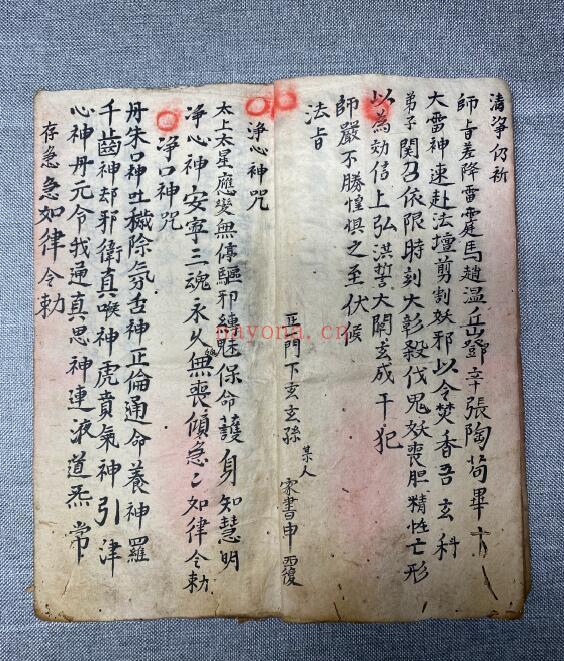 清淨仍祈
師旨差降雷霆馬趙温岳鄧辛張陶苟畢
大雷神速赴法壇剪割妖邪以令焚香吾玄科
弟子関召依限時刻大彰殺伐鬼妖喪胆精牲亡形
以為効信上弘洪誓大闡玄成干犯
師嚴不勝惶惧之至伏候
法旨
正門下玄玄孫某人家書申覆
淨心神咒
太上太星應変無停驅邪縛魅保命護身知慧明
淨心神安寧三魂永久無喪傾急〻如律令勅
淨口神咒
丹朱口神吐穢除氛舌神正倫通命養神羅
千齒神却邪衛真喉神虎賁氣神引津
心神丹元令我通真思神連液道炁常
存急急如律令勅
nayona.cn